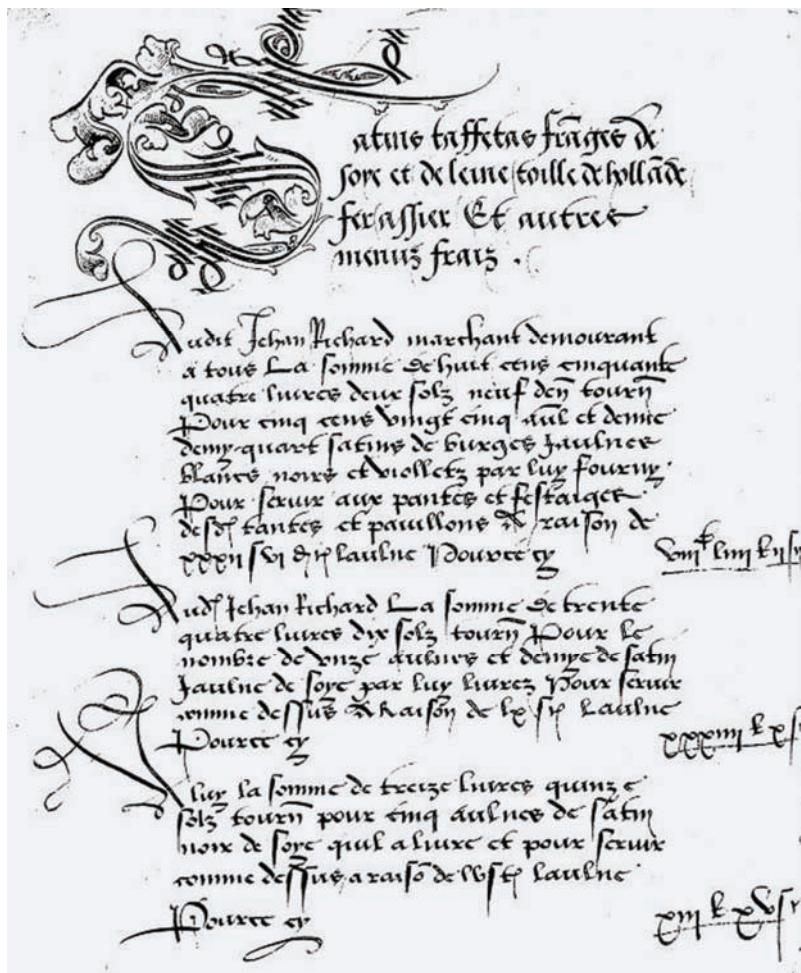 Satins taffetas franges de
soye et de leine toille de hollande
fer assier Et autres
menuz fraiz .
Audit Jehan Richard marchant demourant
a tous La somme de huit cens cinquante
quatre livres deux solz neuf den tourn
Pour cinq cens vingt cinq aul et demie
demy-quart satins de burges Jaulnes
blancs noirs et violletz par luy fourny
Pour servir aux pantes et festaiges
desd tantes et pavillons A raison de
xxxii s vi d laulne Pource cy
viii liiii
Aud Jehan Richard La somme de trente
quatre livres dix solz tourn Pour le
nombre de unze aulnes et demye de satin
Jaulne de soye par luy livrez Pour servir
comme dessus A Raison de lx s laulne
Pource cy
xxxiiii l x s
A luy la somme de treize livres quinze
solz tourn pour cinq aulnes de satin
noir de soye quil a livre et pour servir
comme dessus a raison de lv s laulne
Pource cy
xiii l xv s